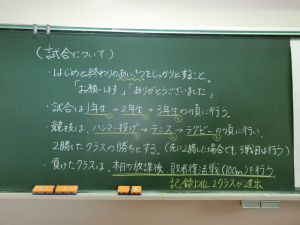 (試合について)
・はじめと終わりのあいさつをしっかりとすること。
「お願いします」「ありがとうございました」
・試合は1年生→2年生→3年生の順に行う。
・競技は、ハンマー投げ→テニス→ラグビーの順に行い、
2勝したクラスの勝ちとする。(先に2勝した場合でも3戦目は行う)
・負けたクラスは、本日の放課後、敗者復活戦(100m)を行う
記録上位2クラスが進出